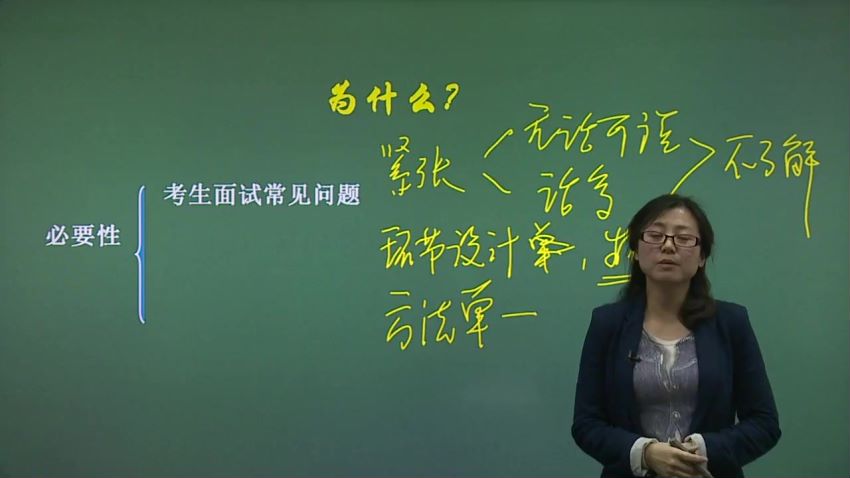 为什么?
考生面试常见问题
必要性
紧张
无话可说
话多
不了解
环节设计单,
方法单一